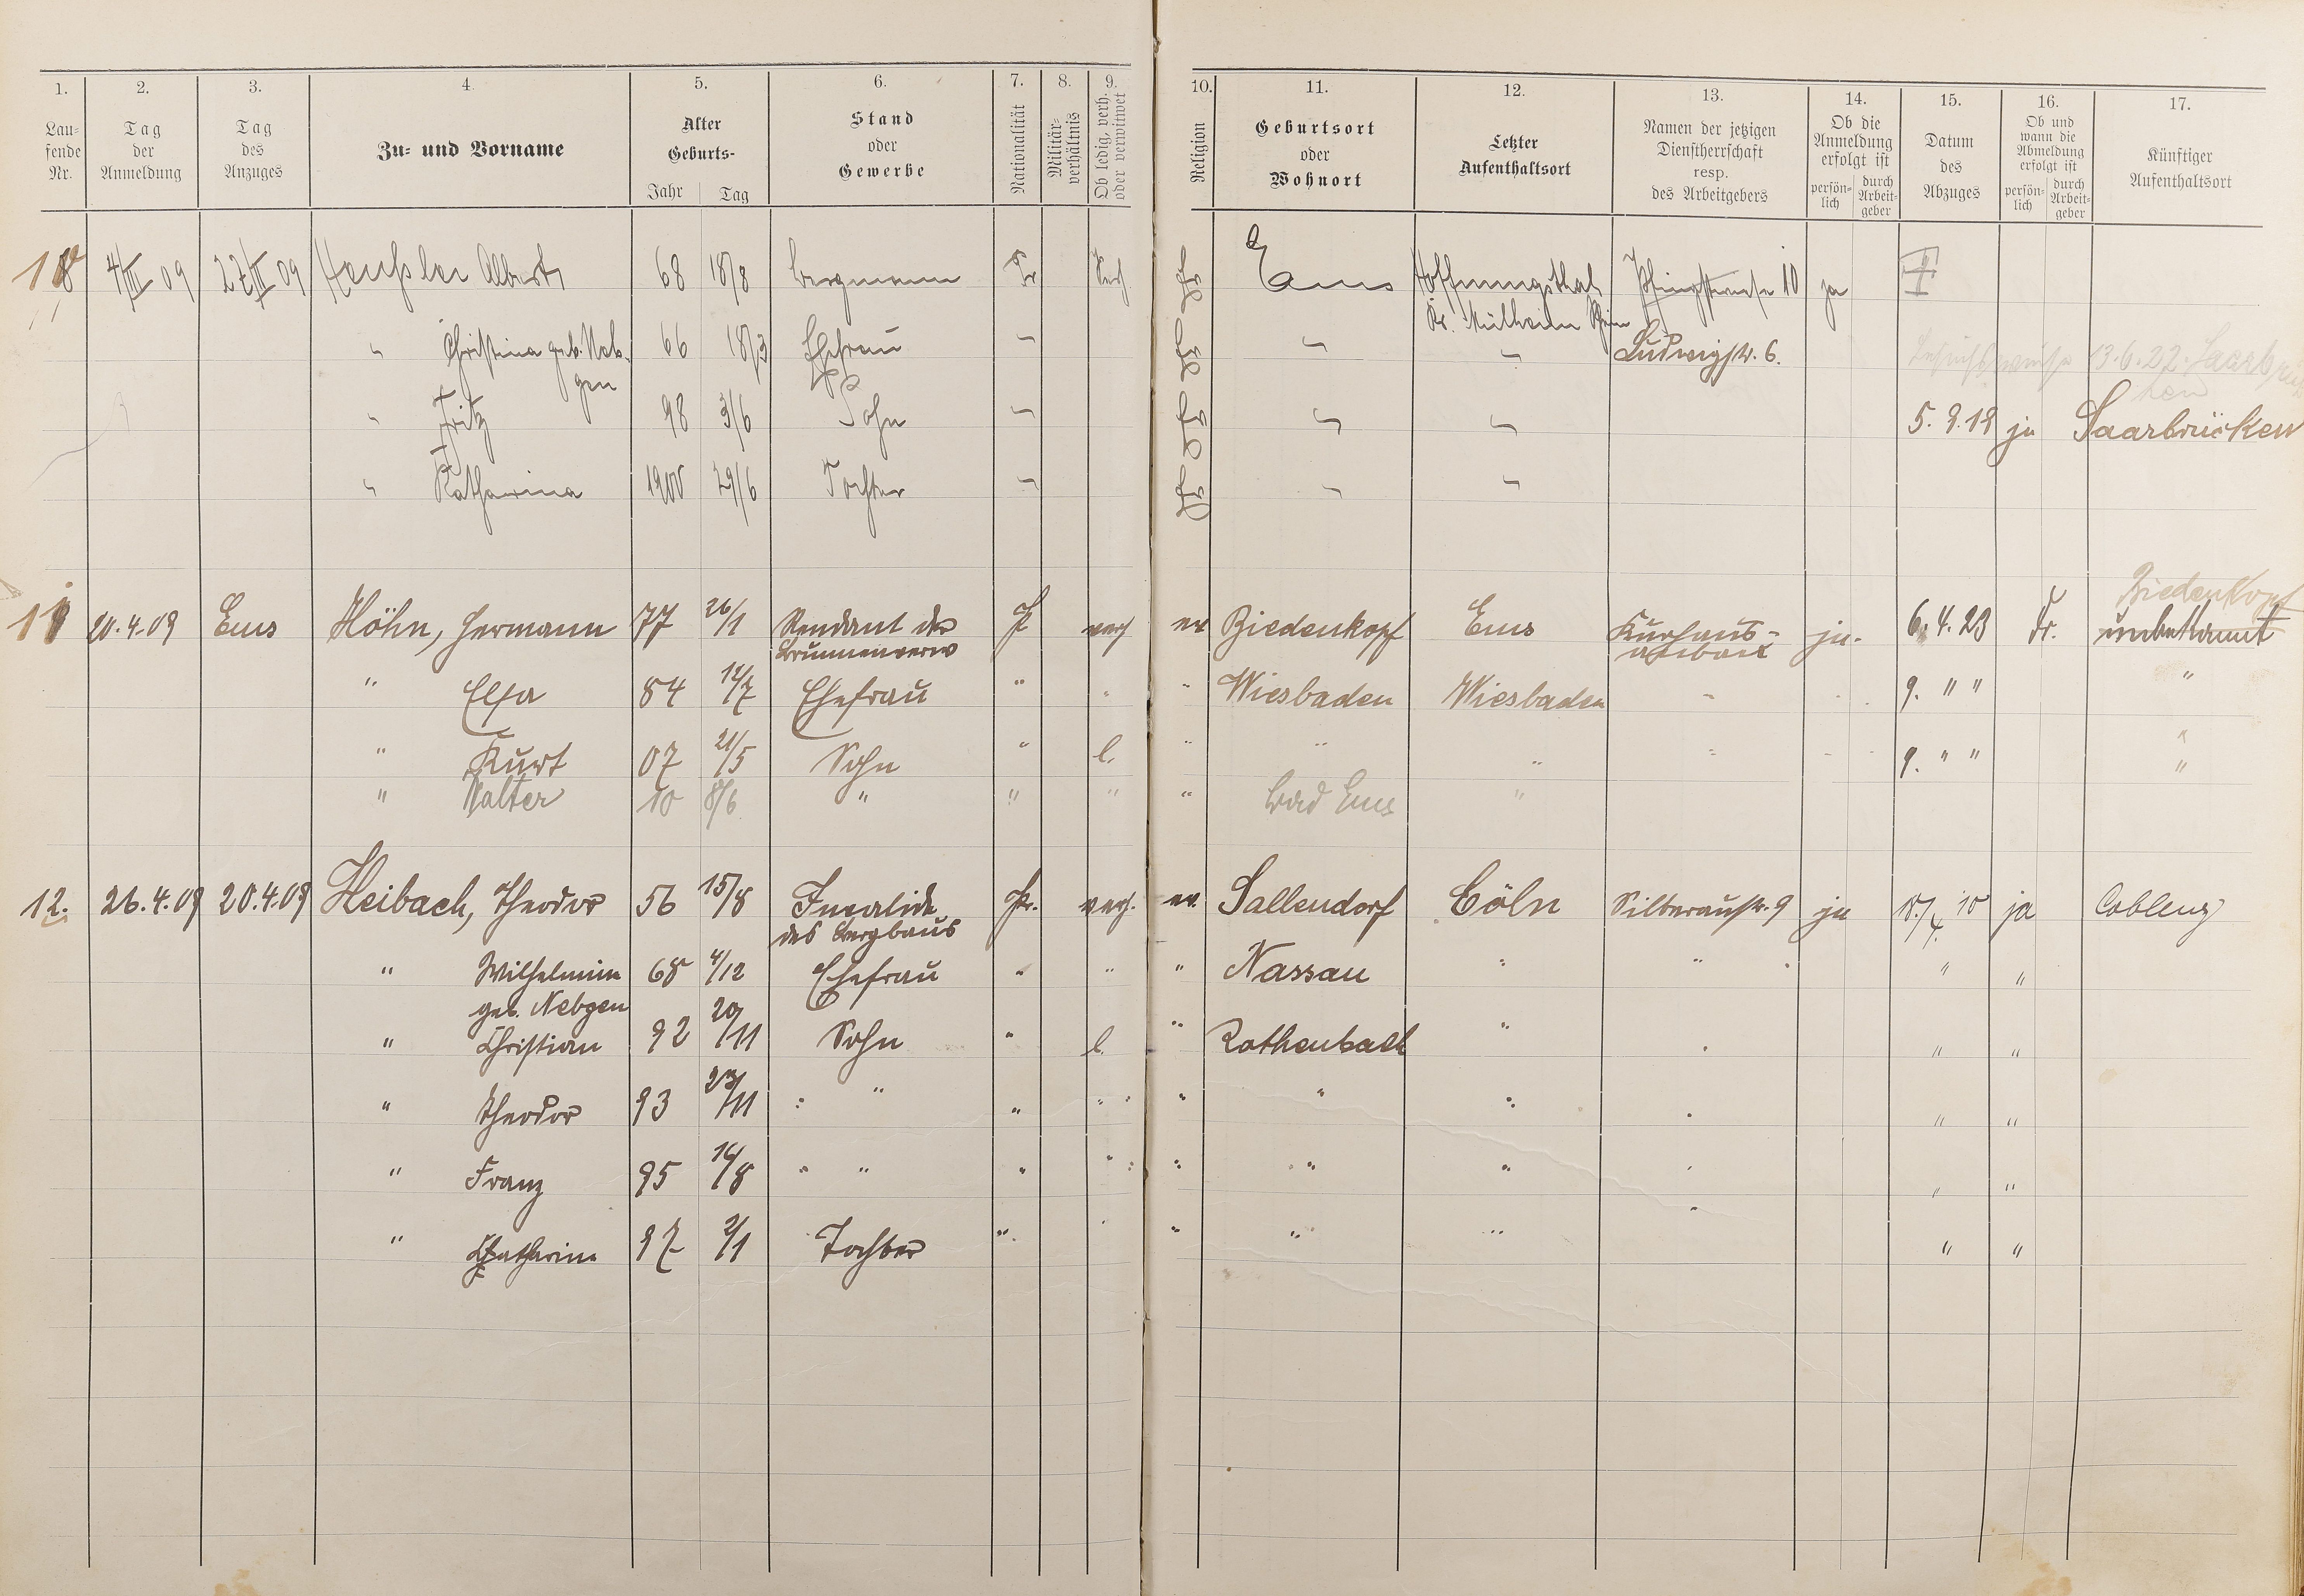 1. 2. 3. 4. 5. 6. 7. 8. 9. 10. 11. 12. 13. 14. 15. 16. 17.
Lau-
fende
Nr.
Tag
der
Anmeldung
Tag
des
Anzuges
Zu- und Vorname
Alter
Geburts-
Jahr Tag
Stand
oder
Gewerbe
Nationalität
Militär-
verhältnis
Ob ledig, verh.
oder verwitwet
Religion
Geburtsort
oder
Wohnort
Letzter
Aufenthaltsort
Namen der jetzigen
Dienstherrschaft
resp.
des Arbeitgebers
Ob die
Anmeldung
erfolgt ist
persön-
lich
durch
Arbeit-
geber
Datum
des
Abzuges
Ob und
wann die
Abmeldung
erfolgt ist
persön-
lich
durch
Arbeit-
geber
Künftiger
Aufenthaltsort
4/III 09 27/II 09 Albert 68 18/8 Bergmann Pr Verh Ems Hoffnungsthal 10 ja
Kr. Mülheim Rhein
" Christina geb. Neb- 66 18/3 Ehefrau " " " Ludwigstr. 6. 13.6.22. Saarbrüc
gen ken
" Fritz 98 3/6 Sohn " " " 5. 9. 19 ja Saarbrücken
" Katharina 1900 29/6 Tochter " " "
Biedenkopf
20.4.09 Ems Höhn, Hermann 77 26/1 Rendant der Pr verh ev Biedenkopf Ems Kurhaus- ja. 6. 4. 23 Fr. unbekannt
Brunnenverw
" Elsa 84 12/7 Ehefrau " " " Wiesbaden Wiesbaden " 9. " " "
" Kurt 07 21/5 Sohn " l. " " " " 9. " " "
" Walter 10 8/6 " " " " Bad Ems " "
12. 26.4.09 20.4.09 Heibach, Theodor 56 15/8 Invalide Pr. verh. ev. Sallendorf Cöln Silberaustr. 9 ja 18./4. 10 ja Coblenz
des Bergbaus
" Wilhelmine 68 4/12 Ehefrau " " " Nassau " " " "
geb. Nebgen
" Christian 92 20/11 Sohn " l. " Rothenbach " " " "
" Theodor 93 23/11 " " " " " " " " "
" Franz 95 14/8 " " " " " " " " "
" Katharine 97 2/1 Tochter " " " " " " " "